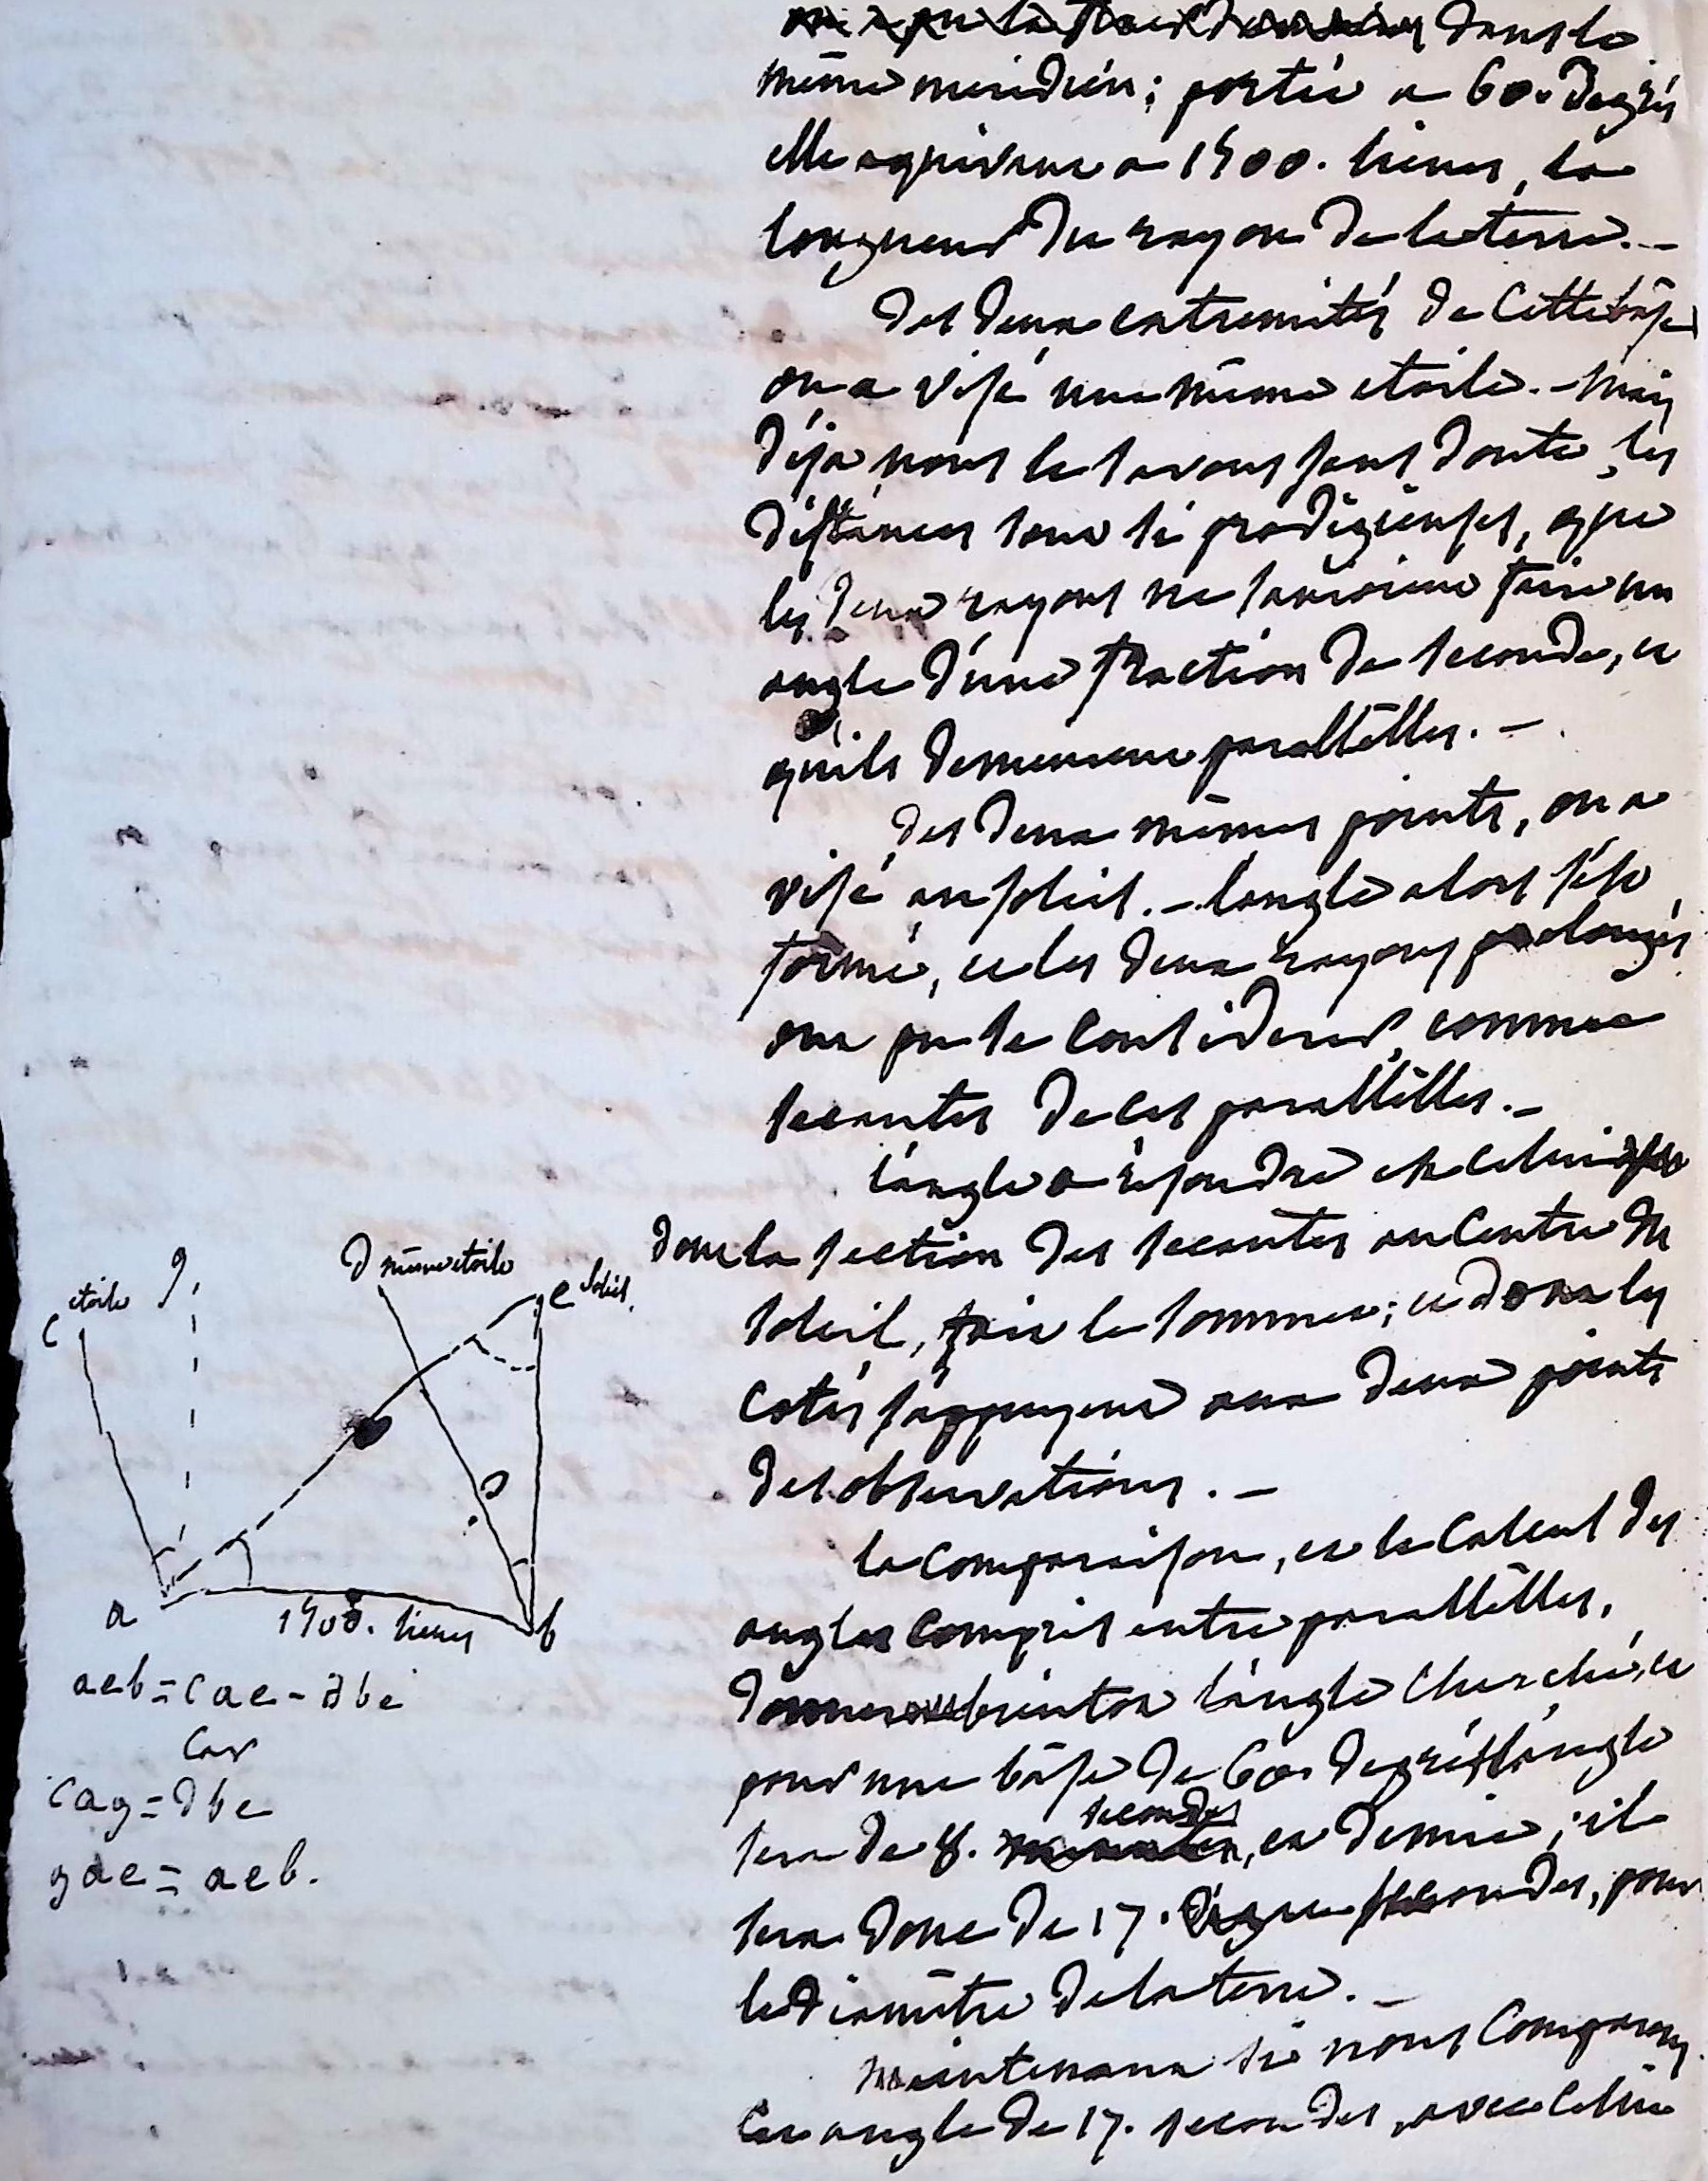 dans le
même meridien; portée a 60. degrés
elle equivaut a 1400. lieues, la
longueur du rayon de la terre. -
des deux extremités de cette bâse
on a visé une même etoile. - mais
déja nous le savons sans doute, les
distances sont si prodigieuses, que
les deux rayons ne sauroient faire un
angle d'une fraction de seconde, et
quils demeurent parallélles. -
des deux mêmes points, on a
visé au soleil. - langle alors s'est
formé, et les deux rayons prolongés
ont pu se considerer comme
secantes de ces parallélles. -
l'angle a résoudre est celui
dont la section des secantes au centre du
soleil, fait le sommet; et dont les
cotés s'appuyent aux deux points
des observations. -
la comparaison, et le calcul des
angles compris entre parallélles,
donnent bientot l'angle cherché, et
pour une bâse de 60. degrés l'angle
secondes
sera de 8. et demie; il
sera donc de 17. secondes, pour
le diamêtre de la terre. -
maintenant si nous comparons
cet angle de 17. secondes, avec celui
c etoile
g
d même etoile
e soleil.
a
1400. lieues
b
aeb = cae - dbe
car
cag = dbe
gae = aeb.